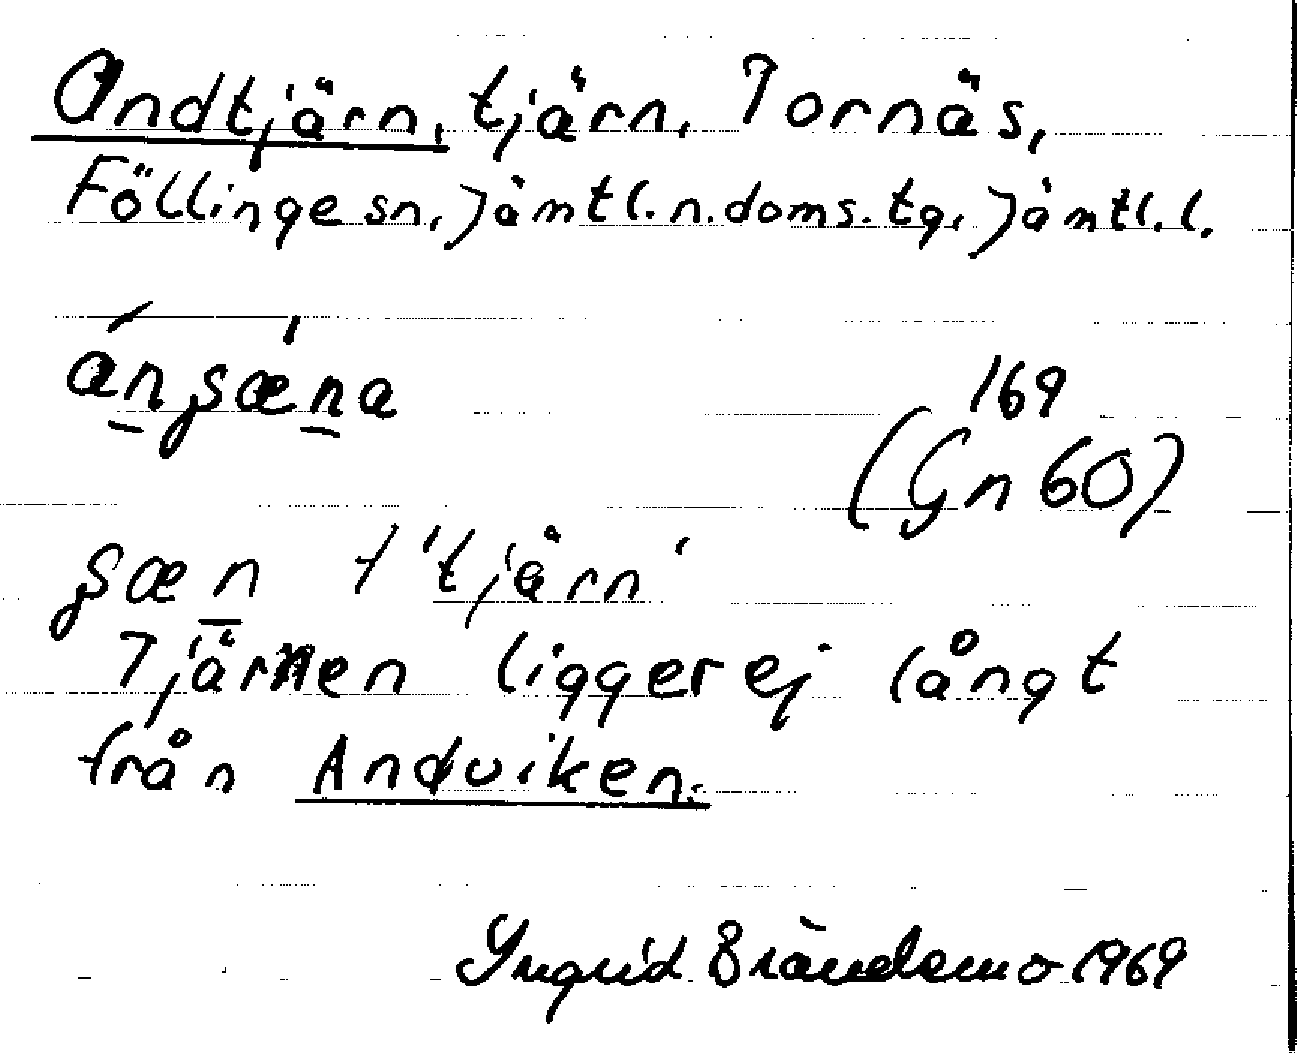 Andtjärn, tjärn, Tornäs,
Föllinge sn, Jämtl. n. doms. tg, Jämtl. l.
169
(Gn 60)
f 'tjärn'
Tjärnen ligger ej långt
från Andviken.
Ingrid Brändemo 1969